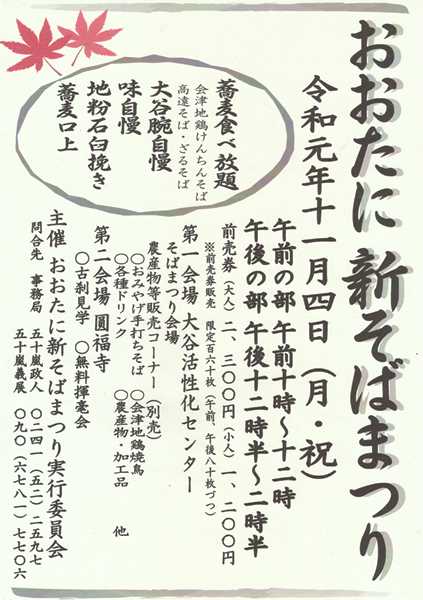 おおたに 新そばまつり
令和元年十一月四日(月・祝)
午前の部 午前十時～十二時
午後の部 午後十二時半～二時半
前売券(大人)二、三〇〇円(小人)一、二〇〇円
※前売券販売 限定百六十枚(午前、午後八十枚づつ)
第一会場 大谷活性化センター
そばまつり会場
農産物等販売コーナー(別売)
〇おみやげ手打ちそば 〇会津地鶏焼鳥
〇各種ドリンク 〇農産物・加工品 他
第二会場 圓福寺
〇古刹見学 〇無料揮毫会
主催 おおたに新そばまつり実行委員会
問合先 事務局 五十嵐政人 〇二四一(五二)二五九七
五十嵐義展 〇九〇(六七八一)七七〇六
蕎麦食べ放題
会津地鶏けんちんそば
高遠そば・ざるそば
大谷腕自慢
味自慢
地粉石臼挽き
蕎麦口上